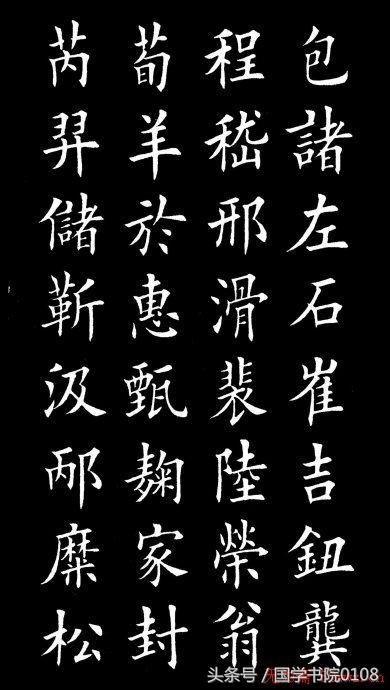 包諸左石崔吉鈕龔
程嵇邢滑裴陸榮翁
荀羊於惠甄麴家封
芮羿儲靳汲邴糜松
头条号 / 国学书院0108